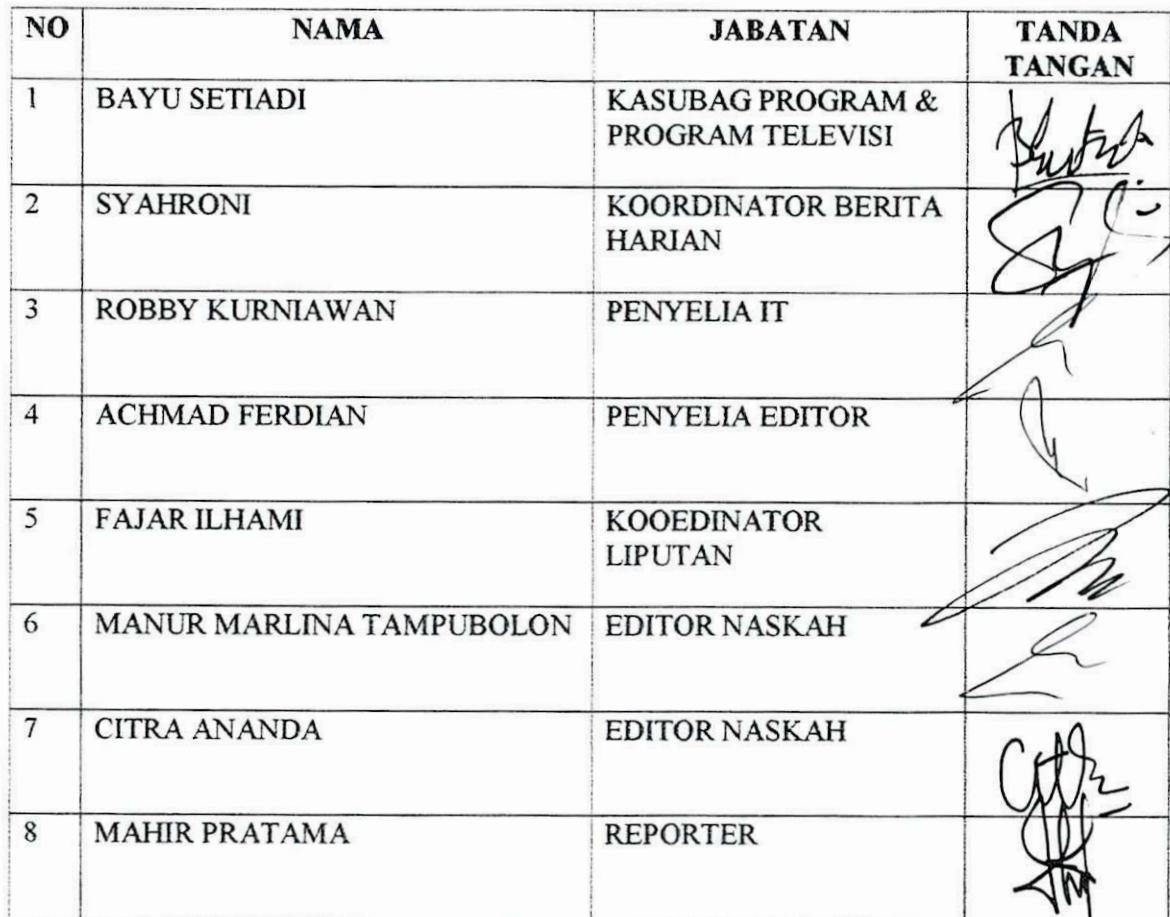 NO NAMA JABATAN TANDA
TANGAN
1 BAYU SETIADI KASUBAG PROGRAM &
PROGRAM TELEVISI
2 SYAHRONI KOORDINATOR BERITA
HARIAN
3 ROBBY KURNIAWAN PENYELIA IT
4 ACHMAD FERDIAN PENYELIA EDITOR
5 FAJAR ILHAMI KOOEDINATOR
LIPUTAN
6 MANUR MARLINA TAMPUBOLON EDITOR NASKAH
7 CITRA ANANDA EDITOR NASKAH
8 MAHIR PRATAMA REPORTER